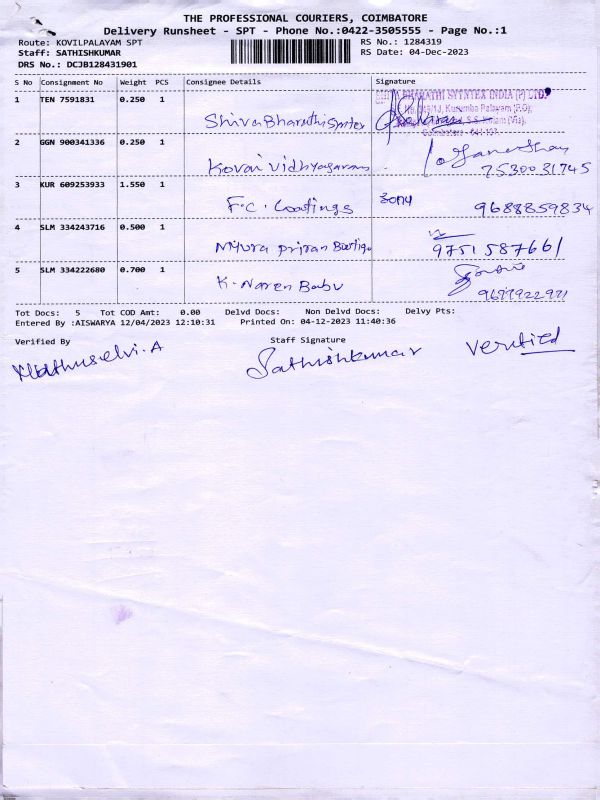 THE PROFESSIONAL COURIERS, COIMBATORE
Delivery Runsheet - SPT - Phone No.:0422-3505555 - Page No.:1
Route: KOVILPALAYAM SPT RS No.: 1284319
Staff: SATHISHKUMAR RS Date: 04-Dec-2023
DRS No.: DCJB128431901
S No Consignment No Weight PCS Consignee Details Signature
1 TEN 7591831 0.250 1 ShivaBharathi Syntex
SHIVA BHARATHI SYNTEX INDIA (P) LTD.
Kurumba Palayam (P.O),
S.S. Kulam (Via),
Coimbatore - 641 107.
2 GGN 900341336 0.250 1 Kovai Vidhyasaram 7530031745
3 KUR 609253933 1.550 1 F.C. Coatings sony 9688859834
4 SLM 334243716 0.500 1 9751587661
5 SLM 334222680 0.700 1 K. Naren Babu
Tot Docs: 5 Tot COD Amt: 0.00 Delvd Docs: Non Delvd Docs: Delvy Pts:
Entered By :AISWARYA 12/04/2023 12:10:31 Printed On: 04-12-2023 11:40:36
Verified By Staff Signature
Sathishkumar Verified